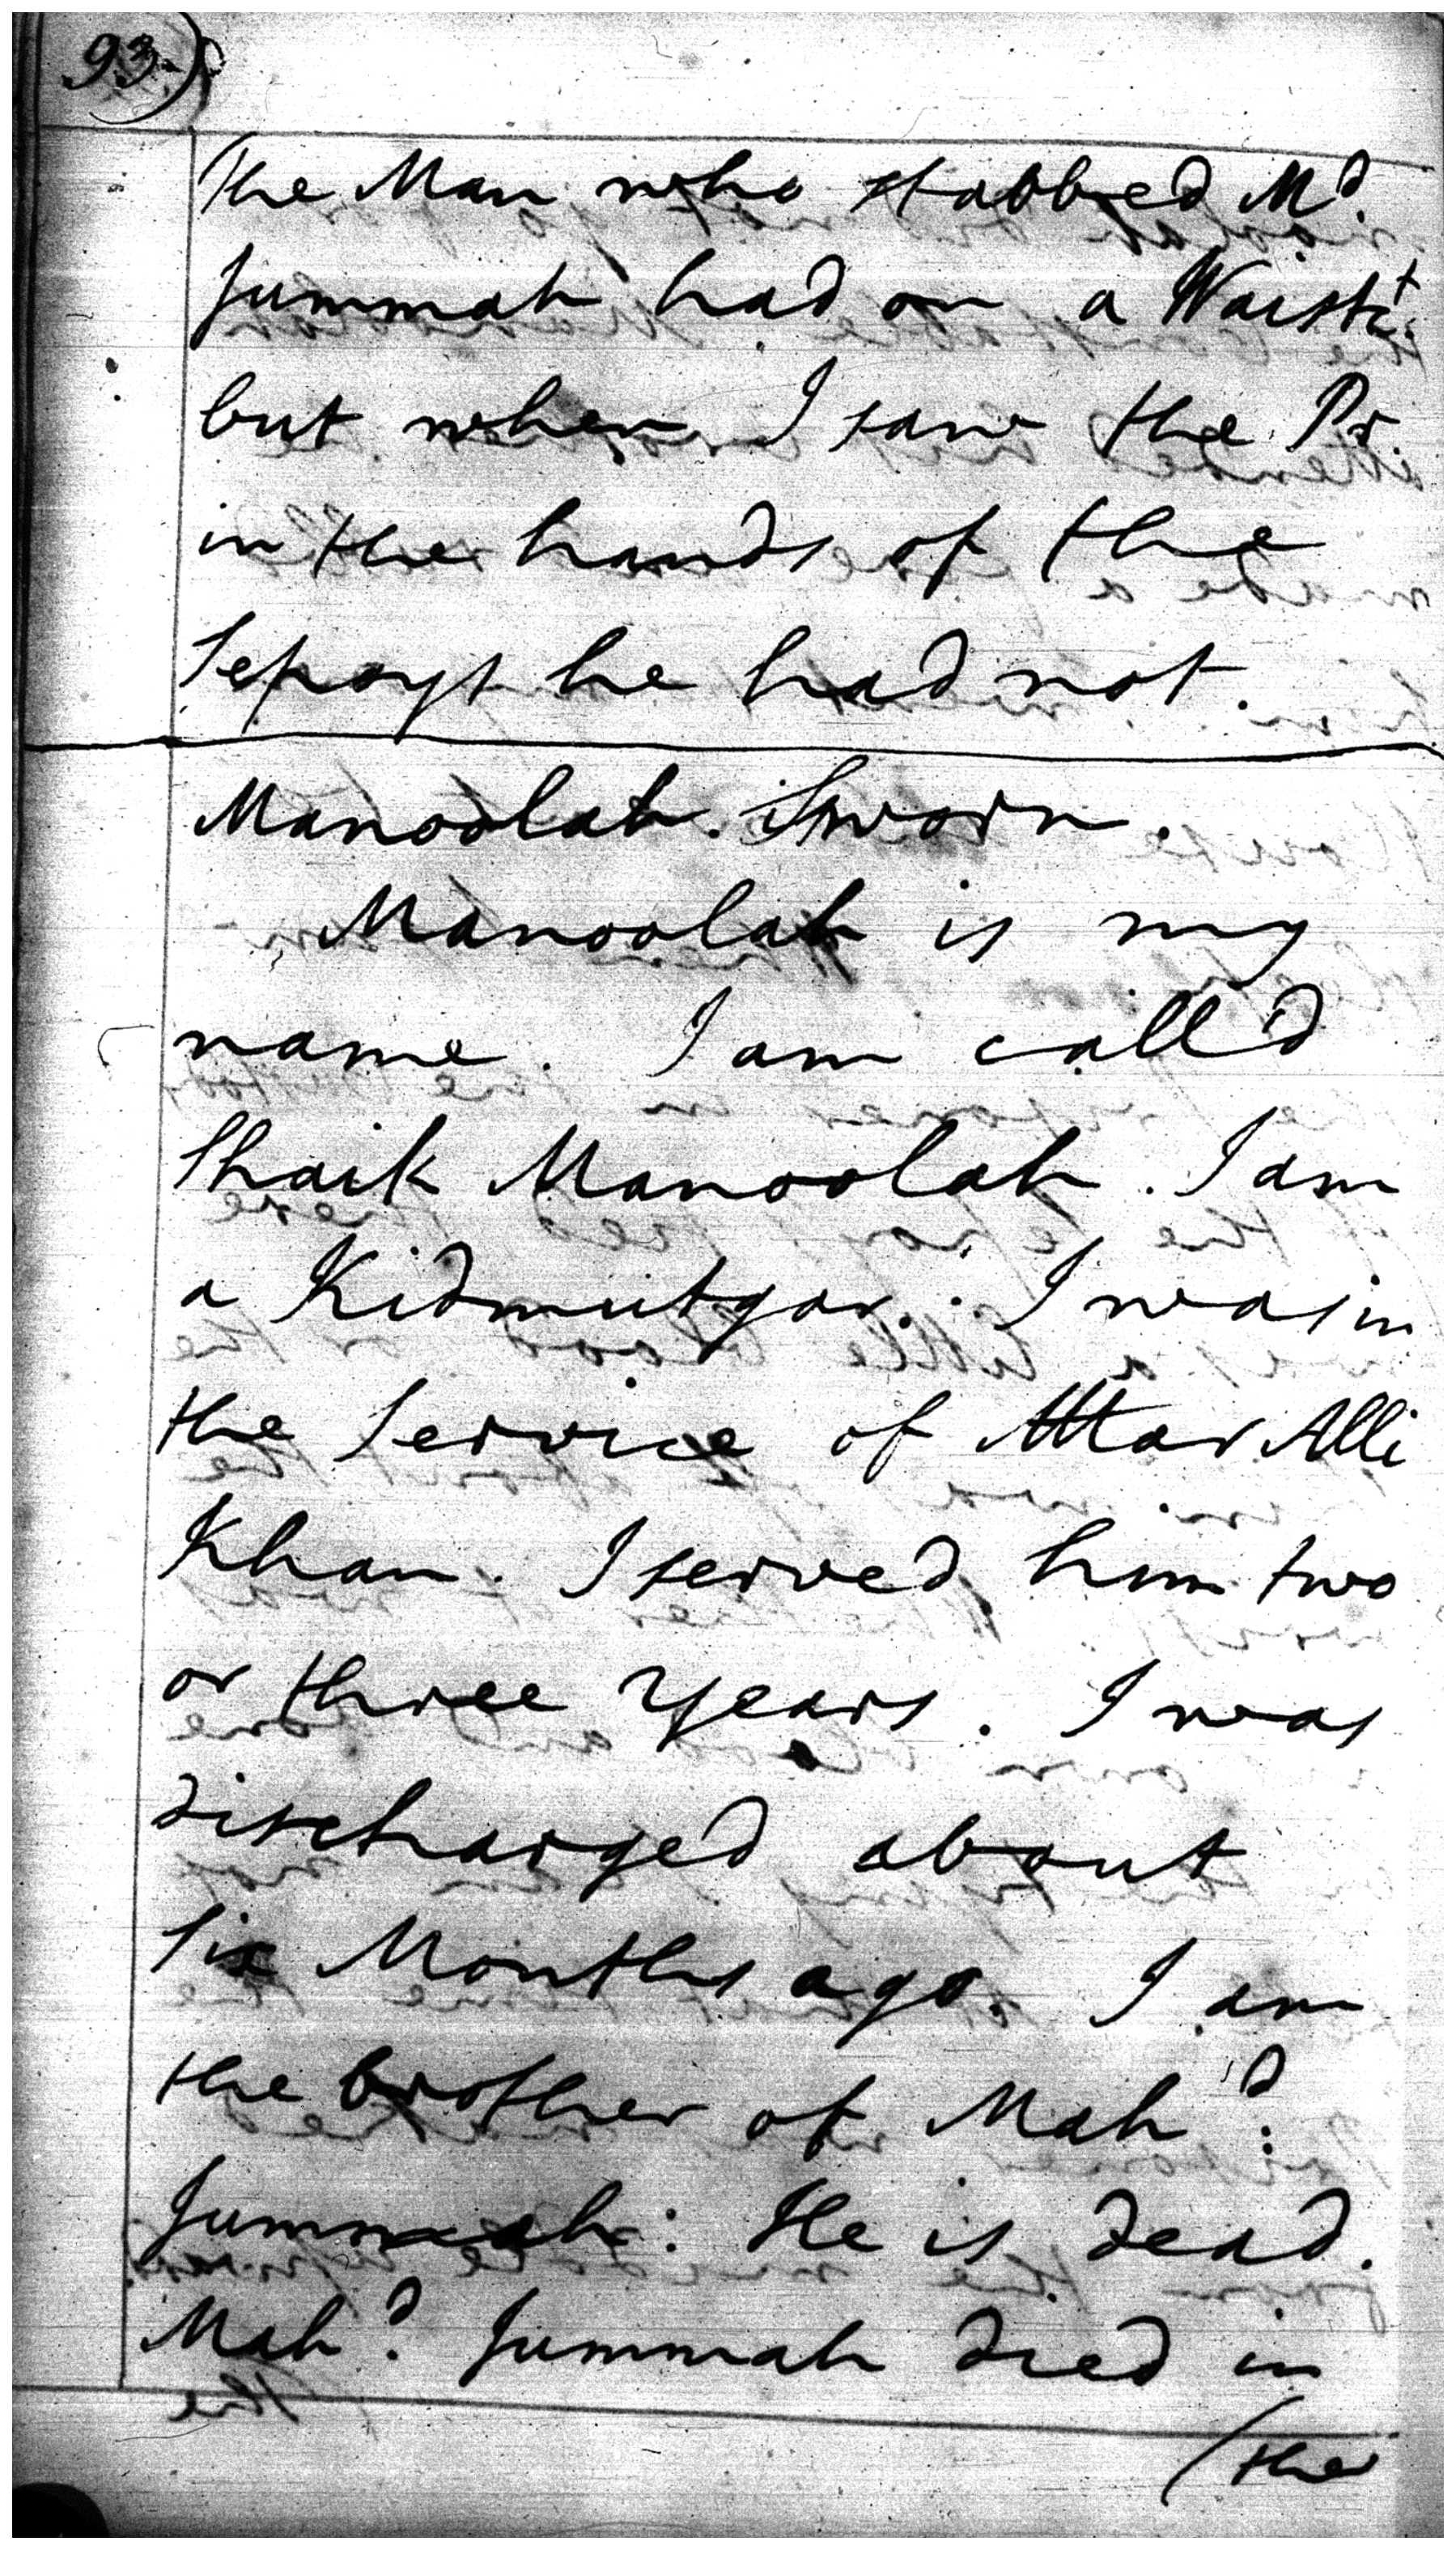 93)
The Man who stabbed Md.
Jummah had on a Waistct.
but when I saw the Pr.
in the hands of the
Sepoys he had not.
Manoolah. Sworn.
Manoolah is my
name. I am call'd
Shaik Manoolah. I am
a Kidmutgar. I was in
the Service of Attar Alli
Khan. I served him two
or three Years. I was
discharged about
Six Months ago. I am
the brother of Mahd:
Jummah: He is dead.
Mahd. Jummah died in
(the